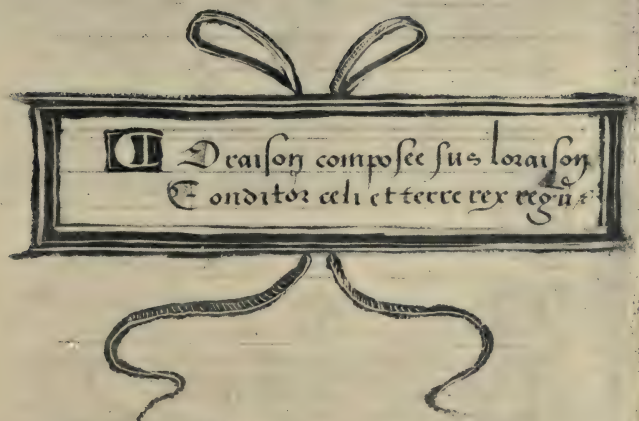 Oraison composee sus loraison
Conditor celi et terre rex regū &